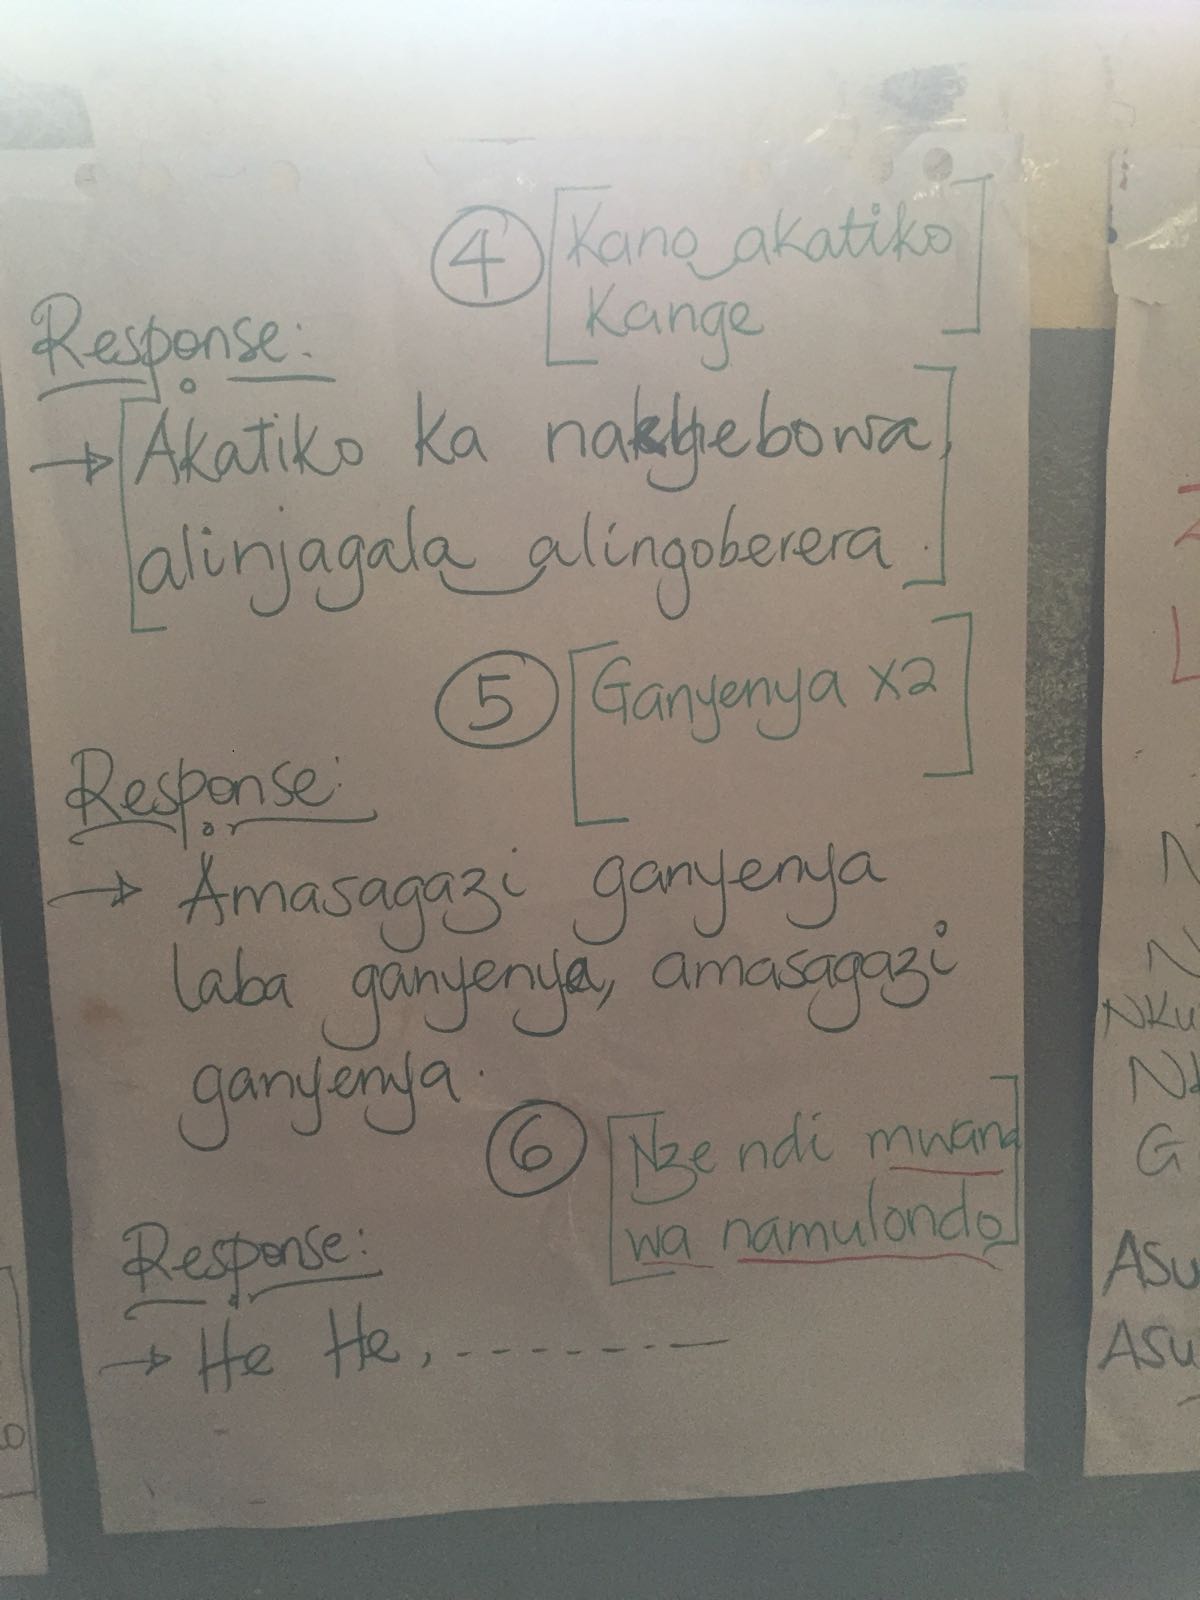 ④ [Kano akatiko
Kange]
Response:
→ [Akatiko ka nakyebowa,
alinjagala alingoberera.]
⑤ [Ganyenya x2]
Response:
→ Amasagazi ganyenya
laba ganyenya, amasagazi
ganyenya.
⑥ [Nze ndi mwana
wa namulondo]
Response:
→ He He, - - - - - - - —
N
N
NKu
G
ASu
ASu